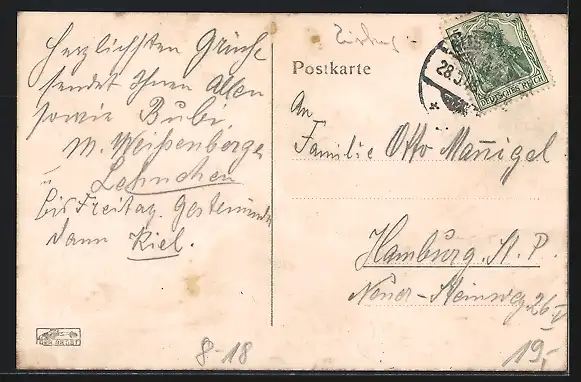 Herzlichsten Grüße
sendet Ihnen Allen
sowie Bubi
M. Weißenberger
u
Lehnchen
bis Freitag. Geestemünde
dann Kiel.
Postkarte
28.5.
DEUTSCHES REICH
An
Familie Otto Mannigel
Hamburg. St. P.
Neuer-Steinweg 26 II
8-18
19,-